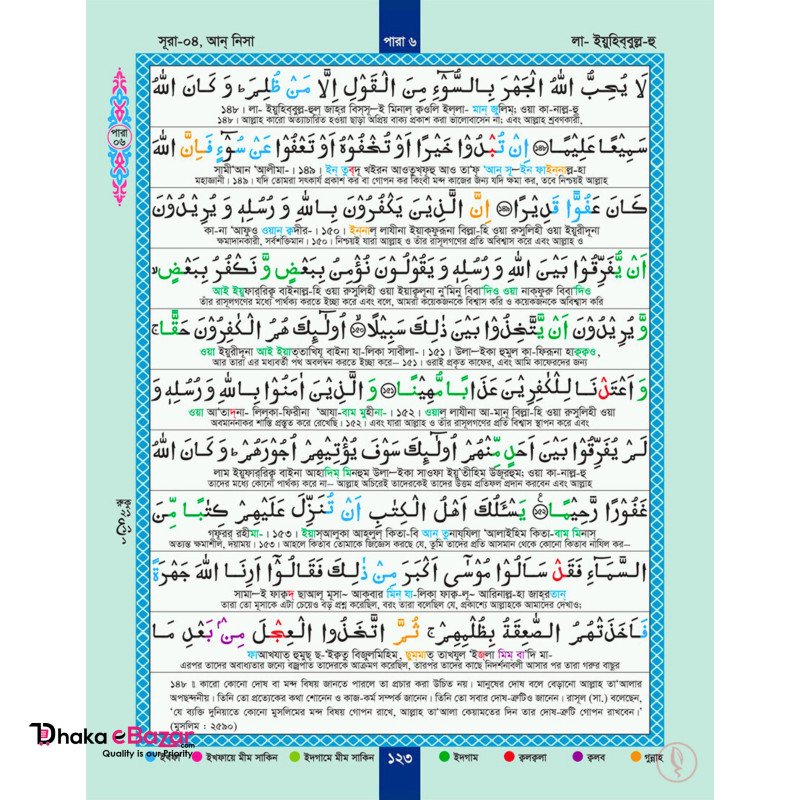 সূরা-০৪, আন্ নিসা
পারা ৬
লা- ইয়ুহিব্বুল্ল-হু
لَا يُحِبُّ اللهُ الْجَهْرَ بِالسُّوْٓءِ مِنَ الْقَوْلِ اِلَّا مَنْ ظُلِمَ ؕ وَ كَانَ اللهُ
১৪৮। লা- ইয়ুহিব্বুল্ল-হুল্ জাহ্র বিস্সূ—ই মিনাল্ ক্বওলি ইল্লা- মান্ জুলিম্; ওয়া কা-নাল্ল-হু
১৪৮। আল্লাহ কারো অত্যাচারিত হওয়া ছাড়া অপ্রিয় বাক্য প্রকাশ করা ভালোবাসেন না; এবং আল্লাহ শ্রবণকারী,
سَمِيْعًا عَلِيْمًا ﴿۱۴۸﴾ اِنْ تُبْدُوْا خَيْرًا اَوْ تُخْفُوْهُ اَوْ تَعْفُوْا عَنْ سُوْٓءٍ فَاِنَّ اللهَ
সামী'আন্ 'আলীমা-। ১৪৯। ইন্ তুব্দূ খইরন আওতুখ্ফূহু আও তা'ফূ 'আন্ সূ—ইন্ ফাইন্নাল্ল-হা
মহাজ্ঞানী। ১৪৯। যদি তোমরা সৎকার্য প্রকাশ কর বা গোপন কর কিংবা মন্দ কাজের জন্য যদি ক্ষমা কর, তবে নিশ্চয়ই আল্লাহ
পারা
০৬
كَانَ عَفُوًّا قَدِيْرًا ﴿۱۴۹﴾ اِنَّ الَّذِيْنَ يَكْفُرُوْنَ بِاللهِ وَ رُسُلِهٖ وَ يُرِيْدُوْنَ
কা-না 'আফুও ওয়ান্ ক্বদীর-। ১৫০। ইন্নাল্ লাযীনা ইয়াক্ফুরূনা বিল্লা-হি ওয়া রুসুলিহী ওয়া ইয়ুরীদূনা
ক্ষমাদানকারী, সর্বশক্তিমান। ১৫০। নিশ্চয়ই যারা আল্লাহ ও তাঁর রাসূলগণের প্রতি অবিশ্বাস করে এবং আল্লাহ ও
اَنْ يُّفَرِّقُوْا بَيْنَ اللهِ وَ رُسُلِهٖ وَ يَقُوْلُوْنَ نُؤْمِنُ بِبَعْضٍ وَّ نَكْفُرُ بِبَعْضٍ ۙ
আই ইয়ুফার্রিক্বূ বাইনাল্ল-হি ওয়া রুসুলিহী ওয়া ইয়াক্বূলূনা নু'মিনু বিবা'দিও ওয়া নাক্ফুরু বিবা'দিও
তাঁর রাসূলগণের মধ্যে পার্থক্য করতে ইচ্ছা করে এবং বলে, আমরা কয়েকজনকে বিশ্বাস করি ও কয়েকজনকে অবিশ্বাস করি
وَّ يُرِيْدُوْنَ اَنْ يَّتَّخِذُوْا بَيْنَ ذٰلِكَ سَبِيْلًا ﴿۱۵۰﴾ اُولٰٓئِكَ هُمُ الْكٰفِرُوْنَ حَقًّا ۚ
ওয়া ইয়ুরীদূনা আই ইয়াত্তাখিযূ বাইনা যা-লিকা সাবীলা-। ১৫১। উলা—ইকা হুমুল্ কা-ফিরূনা হাক্ক্বও,
আর তারা এর মধ্যবর্তী পথ অবলম্বন করতে ইচ্ছে করে– ১৫১। ওরাই প্রকৃত কাফের, এবং আমি কাফেরদের জন্য
وَ اَعْتَدْنَا لِلْكٰفِرِيْنَ عَذَابًا مُّهِيْنًا ﴿۱۵۱﴾ وَ الَّذِيْنَ اٰمَنُوْا بِاللهِ وَ رُسُلِهٖ وَ
ওয়া আ'তাদ্না- লিল্কা-ফিরীনা 'আযা-বাম্ মুহীনা-। ১৫২। ওয়াল্ লাযীনা আ-মানূ বিল্লা-হি ওয়া রুসুলিহী ওয়া
অবমাননাকর শাস্তি প্রস্তুত করে রেখেছি। ১৫২। এবং যারা আল্লাহ ও তাঁর রাসূলগণের প্রতি বিশ্বাস স্থাপন করে এবং
لَمْ يُفَرِّقُوْا بَيْنَ اَحَدٍ مِّنْهُمْ اُولٰٓئِكَ سَوْفَ يُؤْتِيْهِمْ اُجُوْرَهُمْ ؕ وَ كَانَ اللهُ
লাম ইয়ুফার্রিক্বূ বাইনা আহাদিম্ মিনহুম্ উলা—ইকা সাওফা ইয়ু'তীহিম্ উজূরহুম্; ওয়া কা-নাল্ল-হু
তাদের মধ্যে কোনো পার্থক্য করে না– আল্লাহ অচিরেই তাদেরকেই তাদের উত্তম প্রতিফল প্রদান করবেন এবং আল্লাহ
غَفُوْرًا رَّحِيْمًا ﴿۱۵۲﴾ يَسْـَٔلُكَ اَهْلُ الْكِتٰبِ اَنْ تُنَزِّلَ عَلَيْهِمْ كِتٰبًا مِّنَ
গফূরর্ রহীমা-। ১৫৩। ইয়াস্আলুকা আহ্লুল্ কিতা-বি আন্ তুনায্যিলা 'আলাইহিম্ কিতা-বাম্ মিনাস্
অত্যন্ত ক্ষমাশীল, দয়াময়। ১৫৩। আহলে কিতাব তোমাকে জিজ্ঞেস করছে যে, তুমি তাদের প্রতি আসমান থেকে কোনো কিতাব নাযিল কর–
রুকু
السَّمَآءِ فَقَدْ سَاَلُوْا مُوْسٰۤى اَكْبَرَ مِنْ ذٰلِكَ فَقَالُوْۤا اَرِنَا اللهَ جَهْرَةً
সামা—ই ফাক্বদ্ ছাআলূ মূসা~ আক্বার মিন্ যা-লিকা ফাক্ব-লূ~ আরিনাল্ল-হা জাহ্রতান্
তারা তো মূসাকে এটা চেয়েও বড় প্রশ্ন করেছিল, বরং তারা বলেছিল যে, প্রকাশ্যে আল্লাহকে আমাদের দেখাও;
فَاَخَذَتْهُمُ الصّٰعِقَةُ بِظُلْمِهِمْ ۚ ثُمَّ اتَّخَذُوا الْعِجْلَ مِنْۢ بَعْدِ مَا
ফাআখযাত্ হুমুছ্ ছ-'ইক্বতু বিজুল্মিহিম্, ছুম্মাত্ তাখযুল্ 'ইজ্লা মিম্ বা'দি মা-
এরপর তাদের অবাধ্যতার জন্যে বজ্রপাত তাদেরকে আক্রমণ করেছিল, তারপর তাদের কাছে নিদর্শনাবলী আসার পর তারা গরুর বাছুর
১৪৮ঃ কারো কোনো দোষ বা মন্দ বিষয় জানতে পারলে তা প্রচার করা উচিত নয়। মানুষের দোষ বলে বেড়ানো আল্লাহ তা'আলার
অপছন্দনীয়। তিনি তো প্রত্যেকের কথা শোনেন ও কাজ-কর্ম সম্পর্কে জানেন। তিনি তো সবার দোষ-ত্রুটিও জানেন। রাসূল (সা.) বলেছেন,
'যে ব্যক্তি দুনিয়াতে কোনো মুসলিমের মন্দ বিষয় গোপন রাখে, আল্লাহ তা'আলা কেয়ামতের দিন তার দোষ-ত্রুটি গোপন রাখবেন।'
(মুসলিম : ২৫৯০)
Dhaka eBazar.com
Quality is our Priority
ইখফা
ইখফায়ে মীম সাকিন
ইদগামে মীম সাকিন
১২৩
ইদগাম
ক্বলক্বলা
ক্বলব
গুন্নাহ